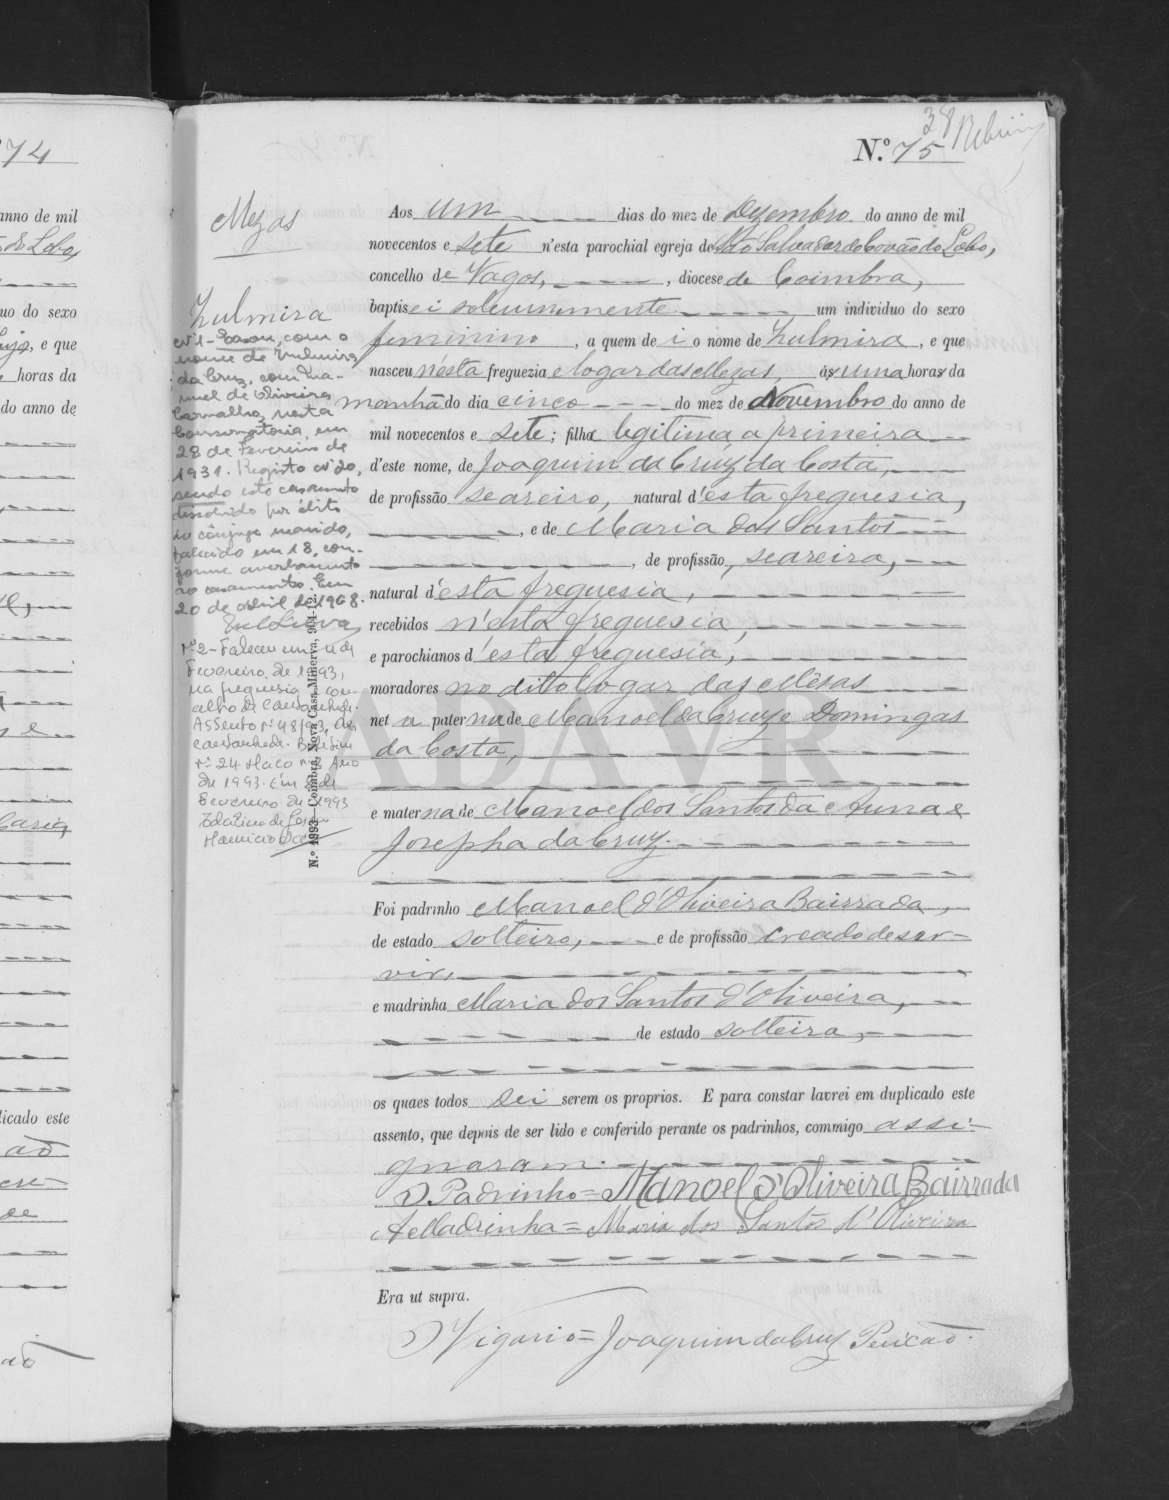 74
anno de mil
do Lobo,
uo do sexo
, e que
horas da
do anno de
licado este
ão
de
ão
38
N.º 75
Mezas
Aos um dias do mez de Dezembro do anno de mil
novecentos e sete n'esta parochial egreja de São Salvador do Covão do Lobo,
concelho de Vagos, , diocese de Coimbra,
baptisei solemnemente um individuo do sexo
feminino , a quem dei o nome de Zulmira , e que
nasceu n'esta freguezia e logar das Mezas, ás uma horas da
manhã do dia cinco do mez de Novembro do anno de
mil novecentos e sete; filha legitima a primeira
d'este nome, de Joaquim da Cruz da Costa,
de profissão seareiro, natural d'esta freguesia,
, e de Maria dos Santos
, de profissão, seareira,
natural d'esta freguesia,
recebidos n'esta freguesia,
e parochianos d'esta freguesia,
moradores no dito logar das Mesas
neta paterna de Manoel da Cruz e Domingas
da Costa,
e materna de Manoel dos Santos da Cunha e
Josepha da Cruz.
Foi padrinho Manoel d'Oliveira Bairrada,
de estado solteiro, e de profissão creado de ser-
vir,
e madrinha Maria dos Santos d'Oliveira,
de estado solteira,
os quaes todos sei serem os proprios. E para constar lavrei em duplicado este
assento, que depois de ser lido e conferido perante os padrinhos, commigo assi-
gnaram.
O Padrinho = Manoel d'Oliveira Bairrada
A Madrinha = Maria dos Santos d'Oliveira
Era ut supra.
O Vigario = Joaquim da Cruz Pericão.
Zulmira
Nº1 - Casou, com o
nome de Zulmira
da Cruz, com Ma-
nuel de Oliveira
Carvalho, nesta
Conservatória, em
28 de Fevereiro de
1931. Registo nº 20,
sendo este casamento
dissolvido por óbito
do cônjuge marido,
falecido em 18, con-
forme averbamento
ao casamento. Em
20 de Abril de 1968.
Nº 2 - Faleceu em de
Fevereiro de 1993,
na freguesia e con-
celho de Cantanhede.
Assento nº 48/93, de
Cantanhede. Boletim
nº 24 Maço nº Ano
de 1993. Em de
Fevereiro de 1993
N.º 1993—Coimbra, Nova Casa Minerva,
ADAVR